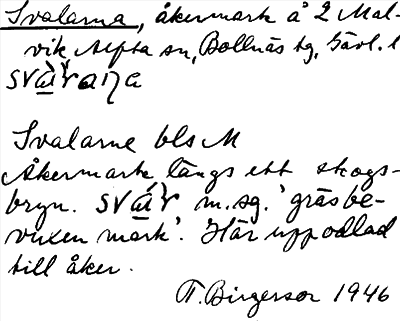 Svalarna, åkermark å 2 Mal-
vik, Alfta sn, Bollnäs tg, Gävl. l
Svalarne bls M
Åkermark längs ett skogs-
bryn. m.sg. 'gräsbe-
vuxen mark'. Här uppodlad
till åker.
T. Birgersor 1946